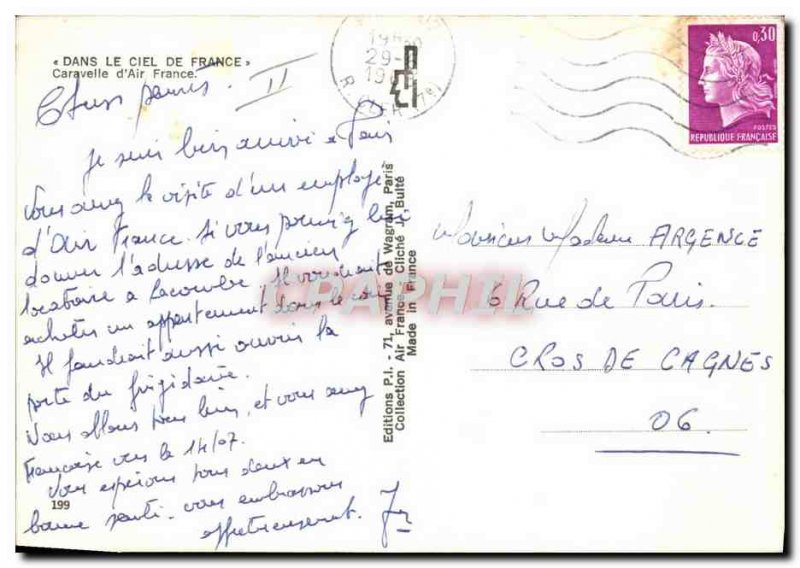 « DANS LE CIEL DE FRANCE »
Caravelle d'Air France.
II
Je suis bien arrivé à Paris
Vous avez la visite d'un employé
d'Air France. Si vous pouviez lui
donner l'adresse de l'ancien
locataire à Lacombe. Il voudrait
acheter un appartement dans le coin
Il faudrait aussi ouvrir la
porte du frigidaire.
Nous allons tous bien, et vous avez
Françoise vers le 14/07.
Nous espérons tous deux en
bonne santé. vous embrassons
affectueusement.
199
Editions P.I. - 71, avenue de Wagram, Paris
Collection Air France. Cliché J. J. Bulté
Made in France
29-
0,30
POSTES
REPUBLIQUE FRANÇAISE
Monsieur Madame ARGENCE
6 Rue de Paris.
CROS DE CAGNES
06.